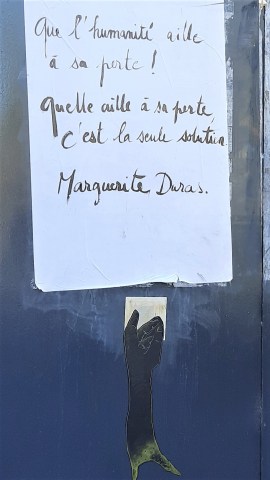 Que l'humanité aille
à sa perte !
Quelle aille à sa perte,
c'est la seule solution.
Marguerite Duras.